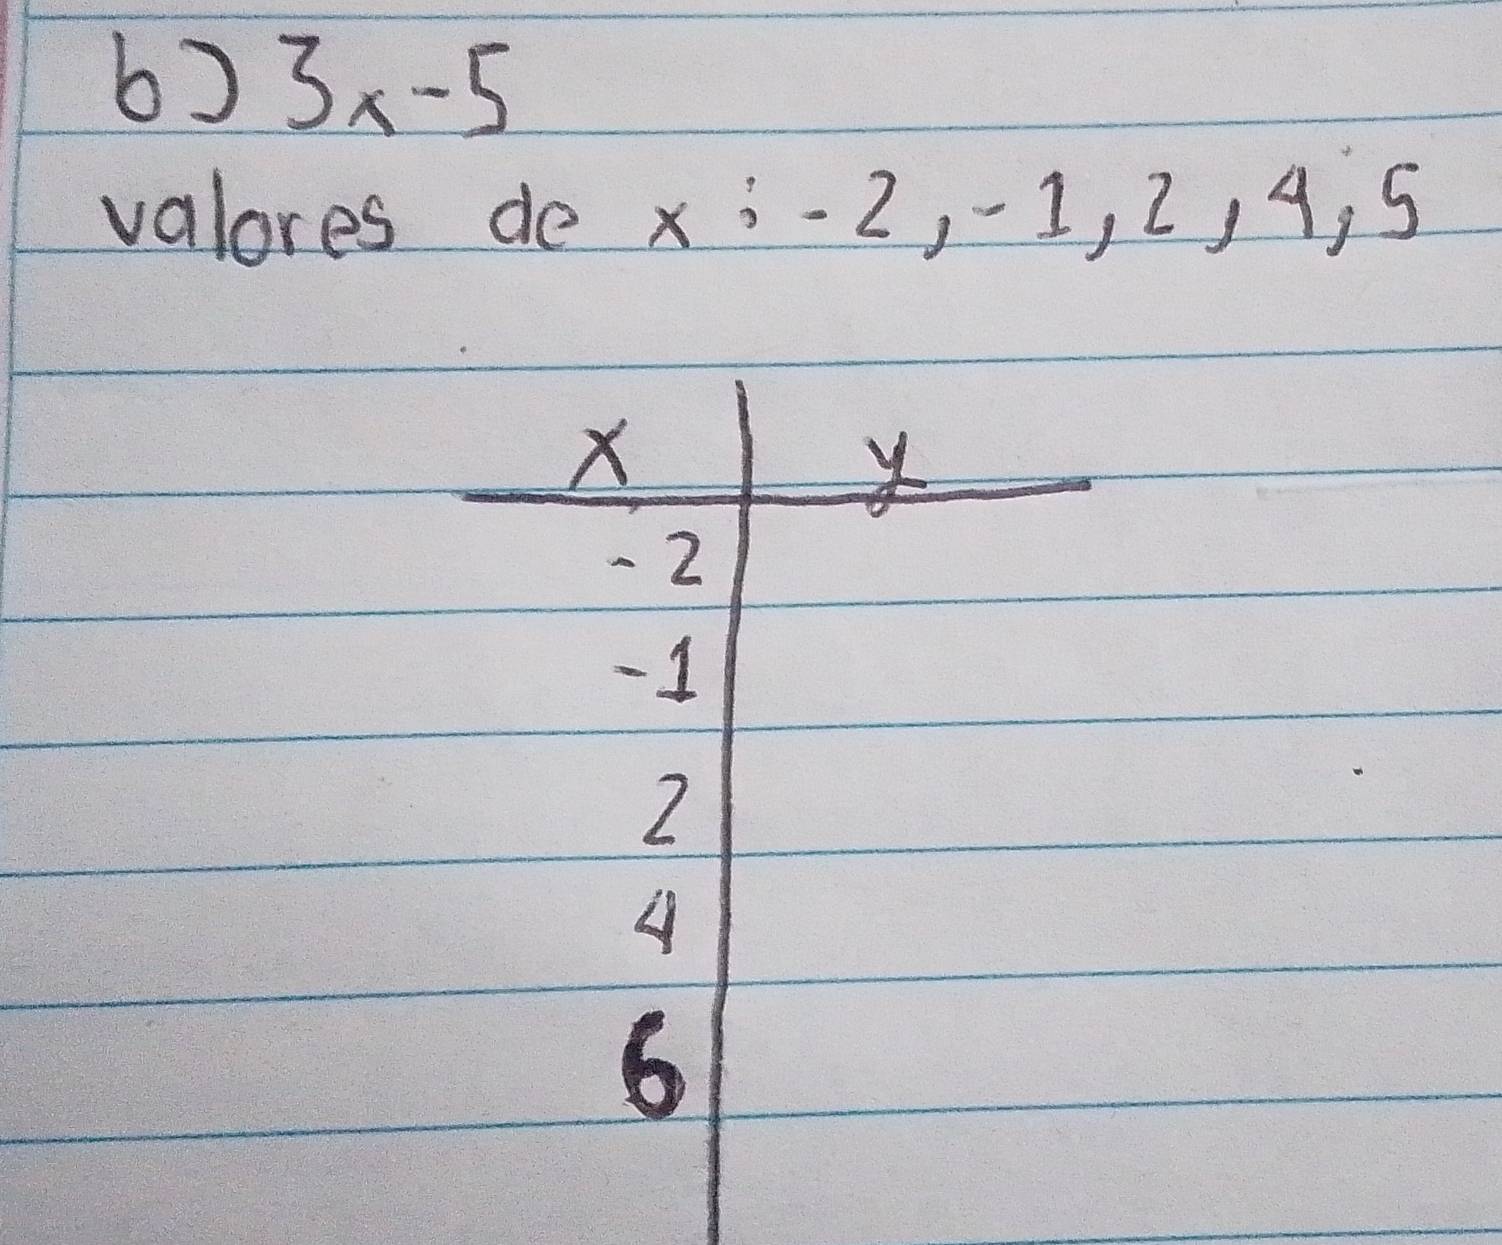 b) 3x-5
valores de x: -2, -1, 2, 4, 5
x y
-2
-1
2
4
6